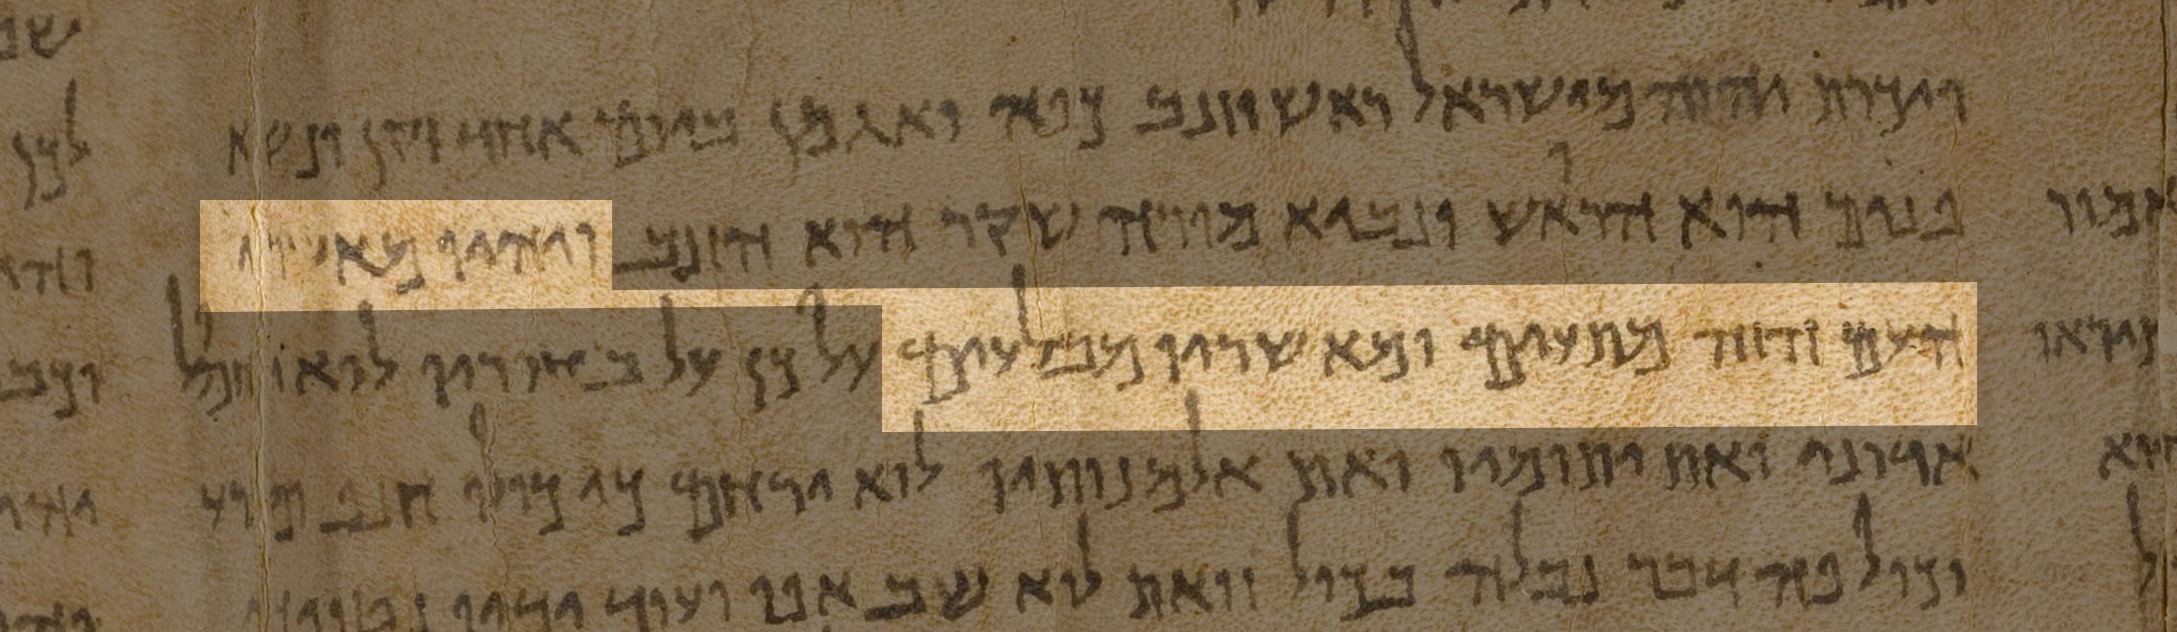 ויכרת יהוה מישראל ראש וזנב כפה ואגמן ביום אחד זקן ונשא
פנים הוא הראש ונביא מורה שקר הוא הזנב ויהיו מאשרי
העם הזה מתעים ומאשריו מבלעים על כן על בחוריו לוא יחמל
אדוני ואת יתומיו ואת אלמנותיו לוא ירחם כי כולו חנף ומרע
וכול פה דבר נבלה בכול זואת לוא שב אפו ועוד ידיו